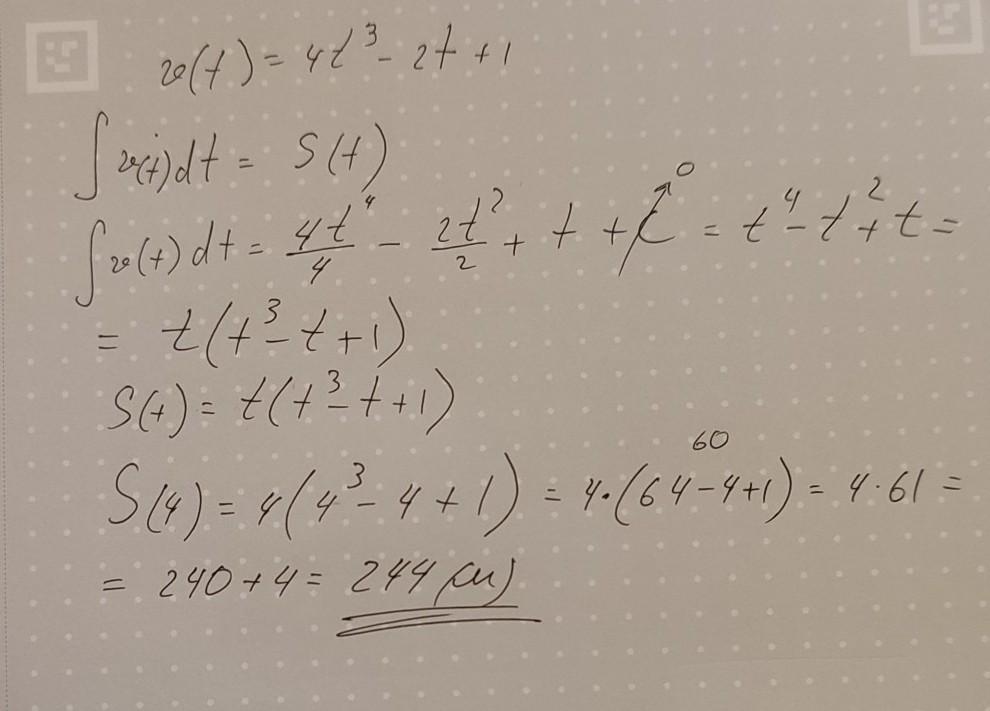 v(t) = 4t³ - 2t + 1
∫ v(t) dt = S(t)
∫ v(t) dt = 4t⁴/4 - 2t²/2 + t + C⁰ = t⁴ - t² + t =
= t(t³ - t + 1)
S(t) = t(t³ - t + 1)
60
S(4) = 4(4³ - 4 + 1) = 4·(64 - 4 + 1) = 4·61 =
= 240 + 4 = 244 (м)